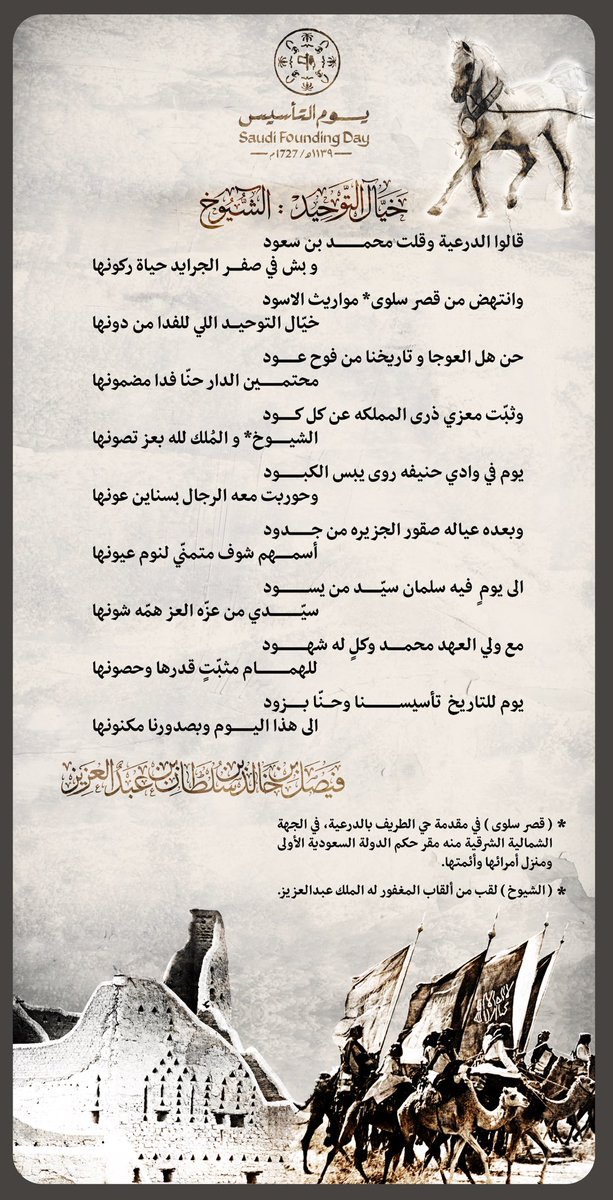 يوم التأسيس
Saudi Founding Day
١١٣٩هـ/ 1727م
خيّال التّوحيد : الشّيوخ
قالوا الدرعية وقلت محمـــد بن سعود
و بش في صفــر الجرايد حياة ركونها
وانتهض من قصر سلوى* مواريث الاسود
خيّال التوحيـد اللي للفدا من دونها
حن هل العوجا و تاريخنا من فوح عـــود
محتمـــين الدار حنّا فدا مضمونها
وثبّت معزي ذرى المملكه عن كل كـــود
الشيـــوخ* و المُلك لله بعز تصونها
يوم في وادي حنيفه روى يبس الكبـــود
وحوربت معه الرجال بسناين عونها
وبعده عياله صقور الجزيره من جـــدود
أسمـــهم شوف متمنّي لنوم عيونها
الى يومٍ فيه سلمان سيّـــد من يســـود
سيّـــدي من عزّه العز همّه شونها
مع ولي العهد محمـــد وكلٍ له شهـــود
للهمـــام مثبّتٍ قدرها وحصونها
يوم للتاريخ تأسيســـنا وحـنّا بـــزود
الى هذا اليـــوم وبصدورنا مكنونها
فيصل بن خالد بن سلطان بن عبدالعزيز
* ( قصر سلوى ) في مقدمة حي الطريف بالدرعية، في الجهة
الشمالية الشرقية منه مقر حكم الدولة السعودية الأولى
ومنزل أمرائها وأئمتها.
* ( الشيوخ ) لقب من ألقاب المغفور له الملك عبدالعزيز.